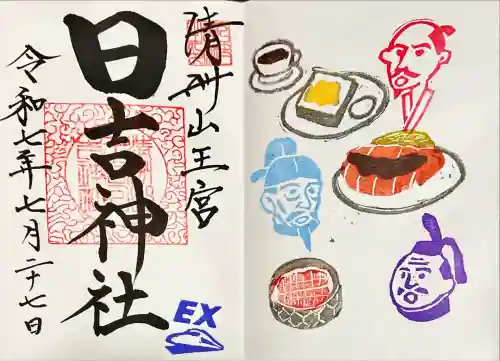 清洲山王宮
日吉神社
令和七年七月二十七日
EX